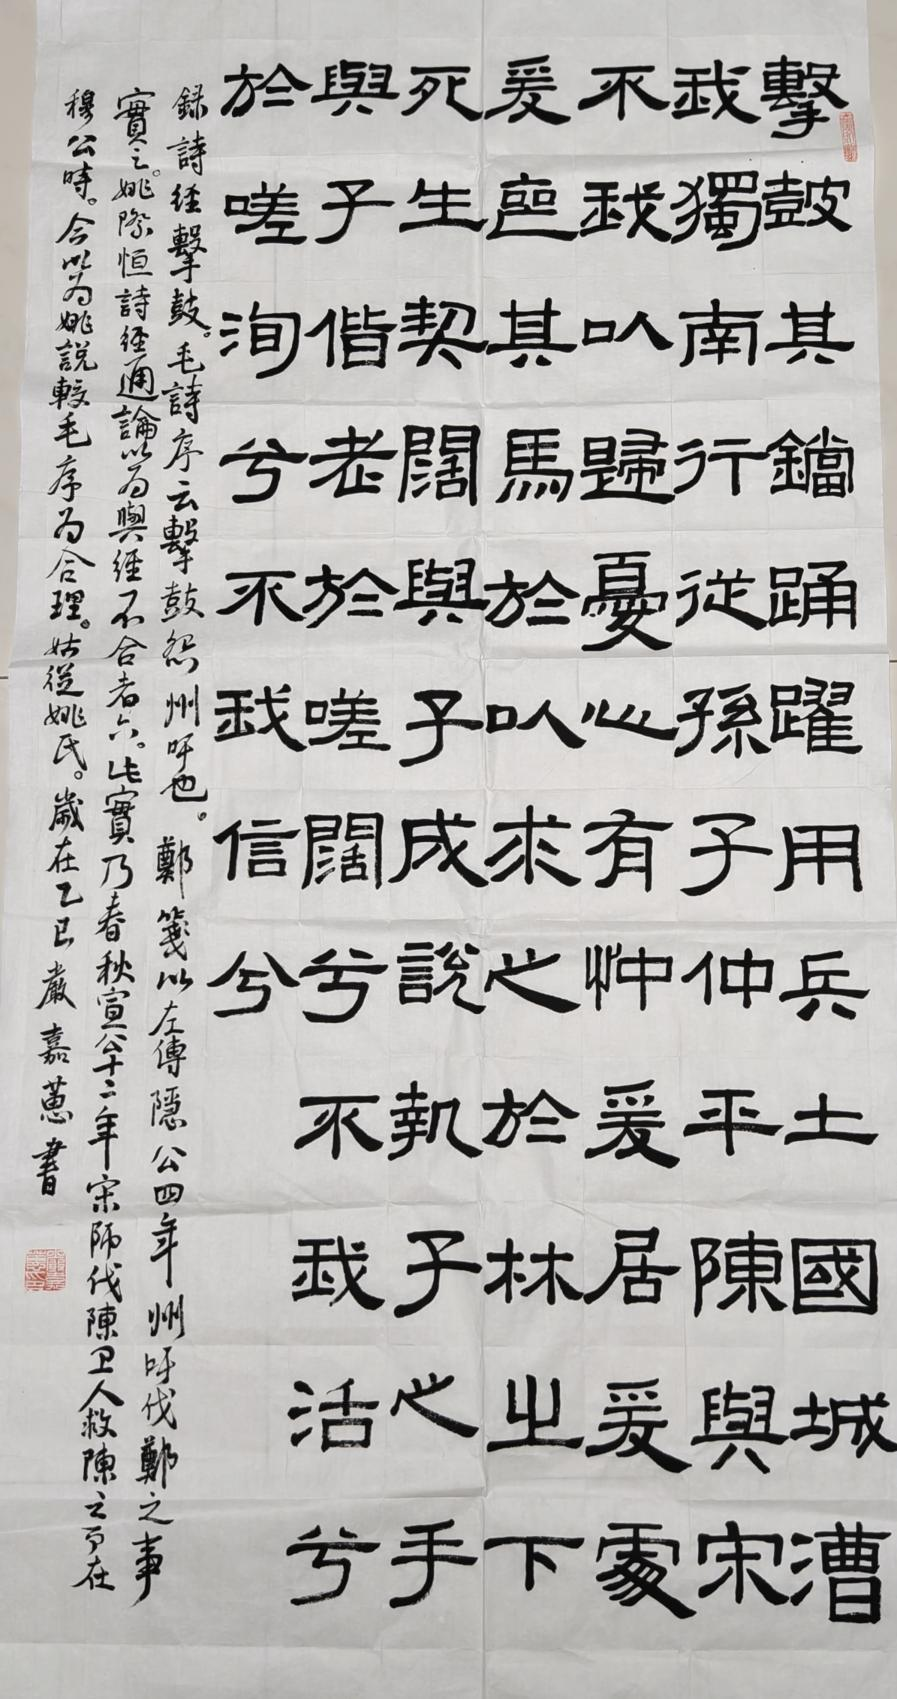 擊鼓其鏜踊躍用兵土國城漕
我獨南行從孫子仲平陳與宋
不我以歸憂心有忡爰居爰處
爰喪其馬於以求之於林之下
死生契闊與子成說執子之手
與子偕老於嗟闊兮不我活兮
於嗟洵兮不我信兮
録詩經擊鼓。毛詩序云擊鼓怨州吁也。鄭箋以左傳隱公四年州吁伐鄭之事
實之。姚際恒詩經通論以为與經不合者六。此實乃春秋宣公十二年宋師伐陳卫人救陳之在
穆公時。今以为姚說較毛序为合理。姑從姚氏。歲在乙巳嚴嘉蕙書